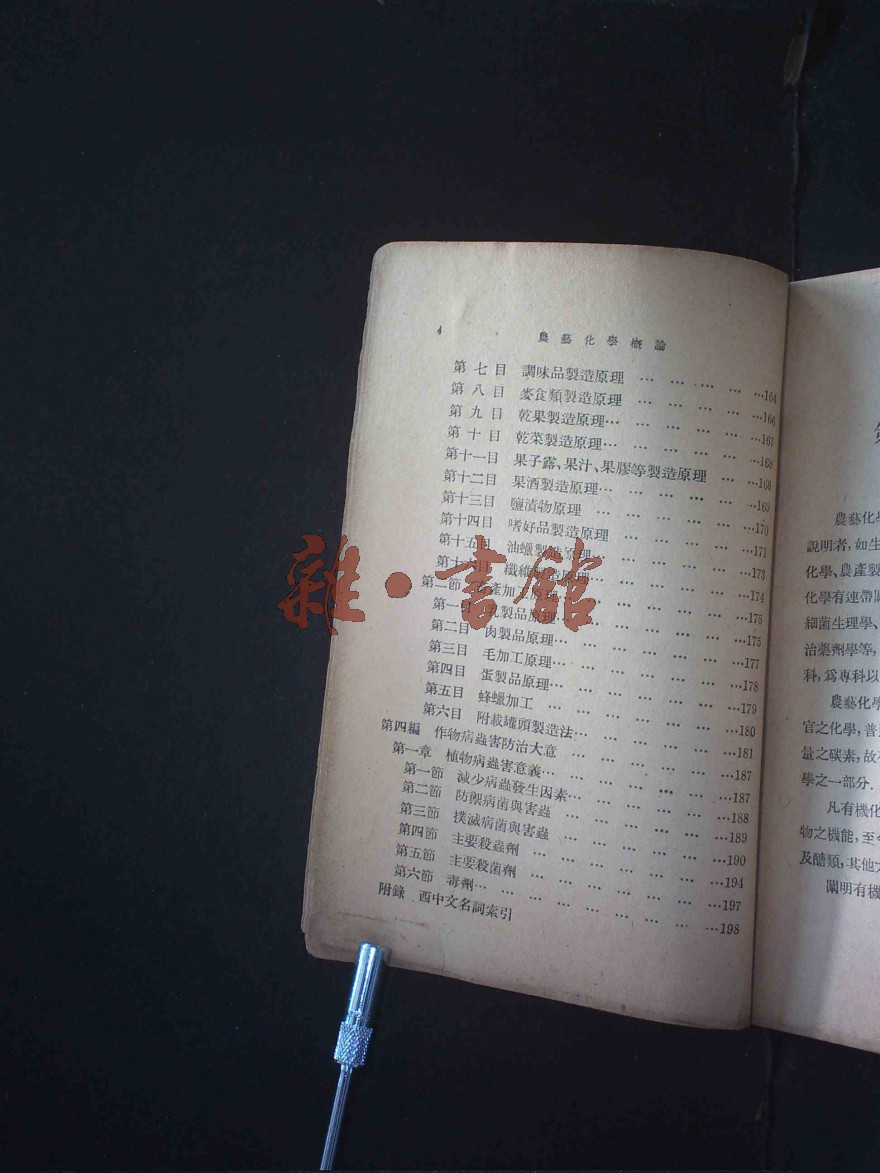 4 農藝化學概論
第七目 調味品製造原理 … … … … … …164
第八目 麥食類製造原理 … … … … … …166
第九目 乾果製造原理… … … … … … …167
第十目 乾菜製造原理… … … … … … …168
第十一目 果子露、果汁、果膠等製造原理 … …168
第十二目 果酒製造原理… … … … … …169
第十三目 鹽漬物原理 … … … … … …170
第十四目 嗜好品製造原理 … … … … …171
第十五目 油蠟製造原理… … … … … …173
第十六目 纖維製造原理… … … … … …174
第二節 畜產加工原理… … … … … …175
第一目 乳製品原理… … … … … …175
第二目 肉製品原理… … … … … …177
第三目 毛加工原理… … … … … …178
第四目 蛋製品原理… … … … … …179
第五目 蜂蠟加工 … … … … … …180
第六目 附載罐頭製造法… … … … …181
第四編 作物病蟲害防治大意 … … … … …187
第一章 植物病蟲害意義… … … … … …187
第一節 減少病蟲發生因素… … … … …188
第二節 防禦病菌與害蟲 … … … … …189
第三節 撲滅病菌與害蟲 … … … … …190
第四節 主要殺蟲劑 … … … … … …194
第五節 主要殺菌劑 … … … … … …197
第六節 毒劑… … … … … … …198
附錄 西中文名詞索引
農藝化學
說明者,如生
化學、農產製
化學有連帶
細菌生理學、
治藥劑學等,
科,爲專科以
農藝化學
官之化學,普
量之碳素,故
學之一部分.
凡有機化
物之機能,至今
及醣類,其他
闡明有機
雜·書館